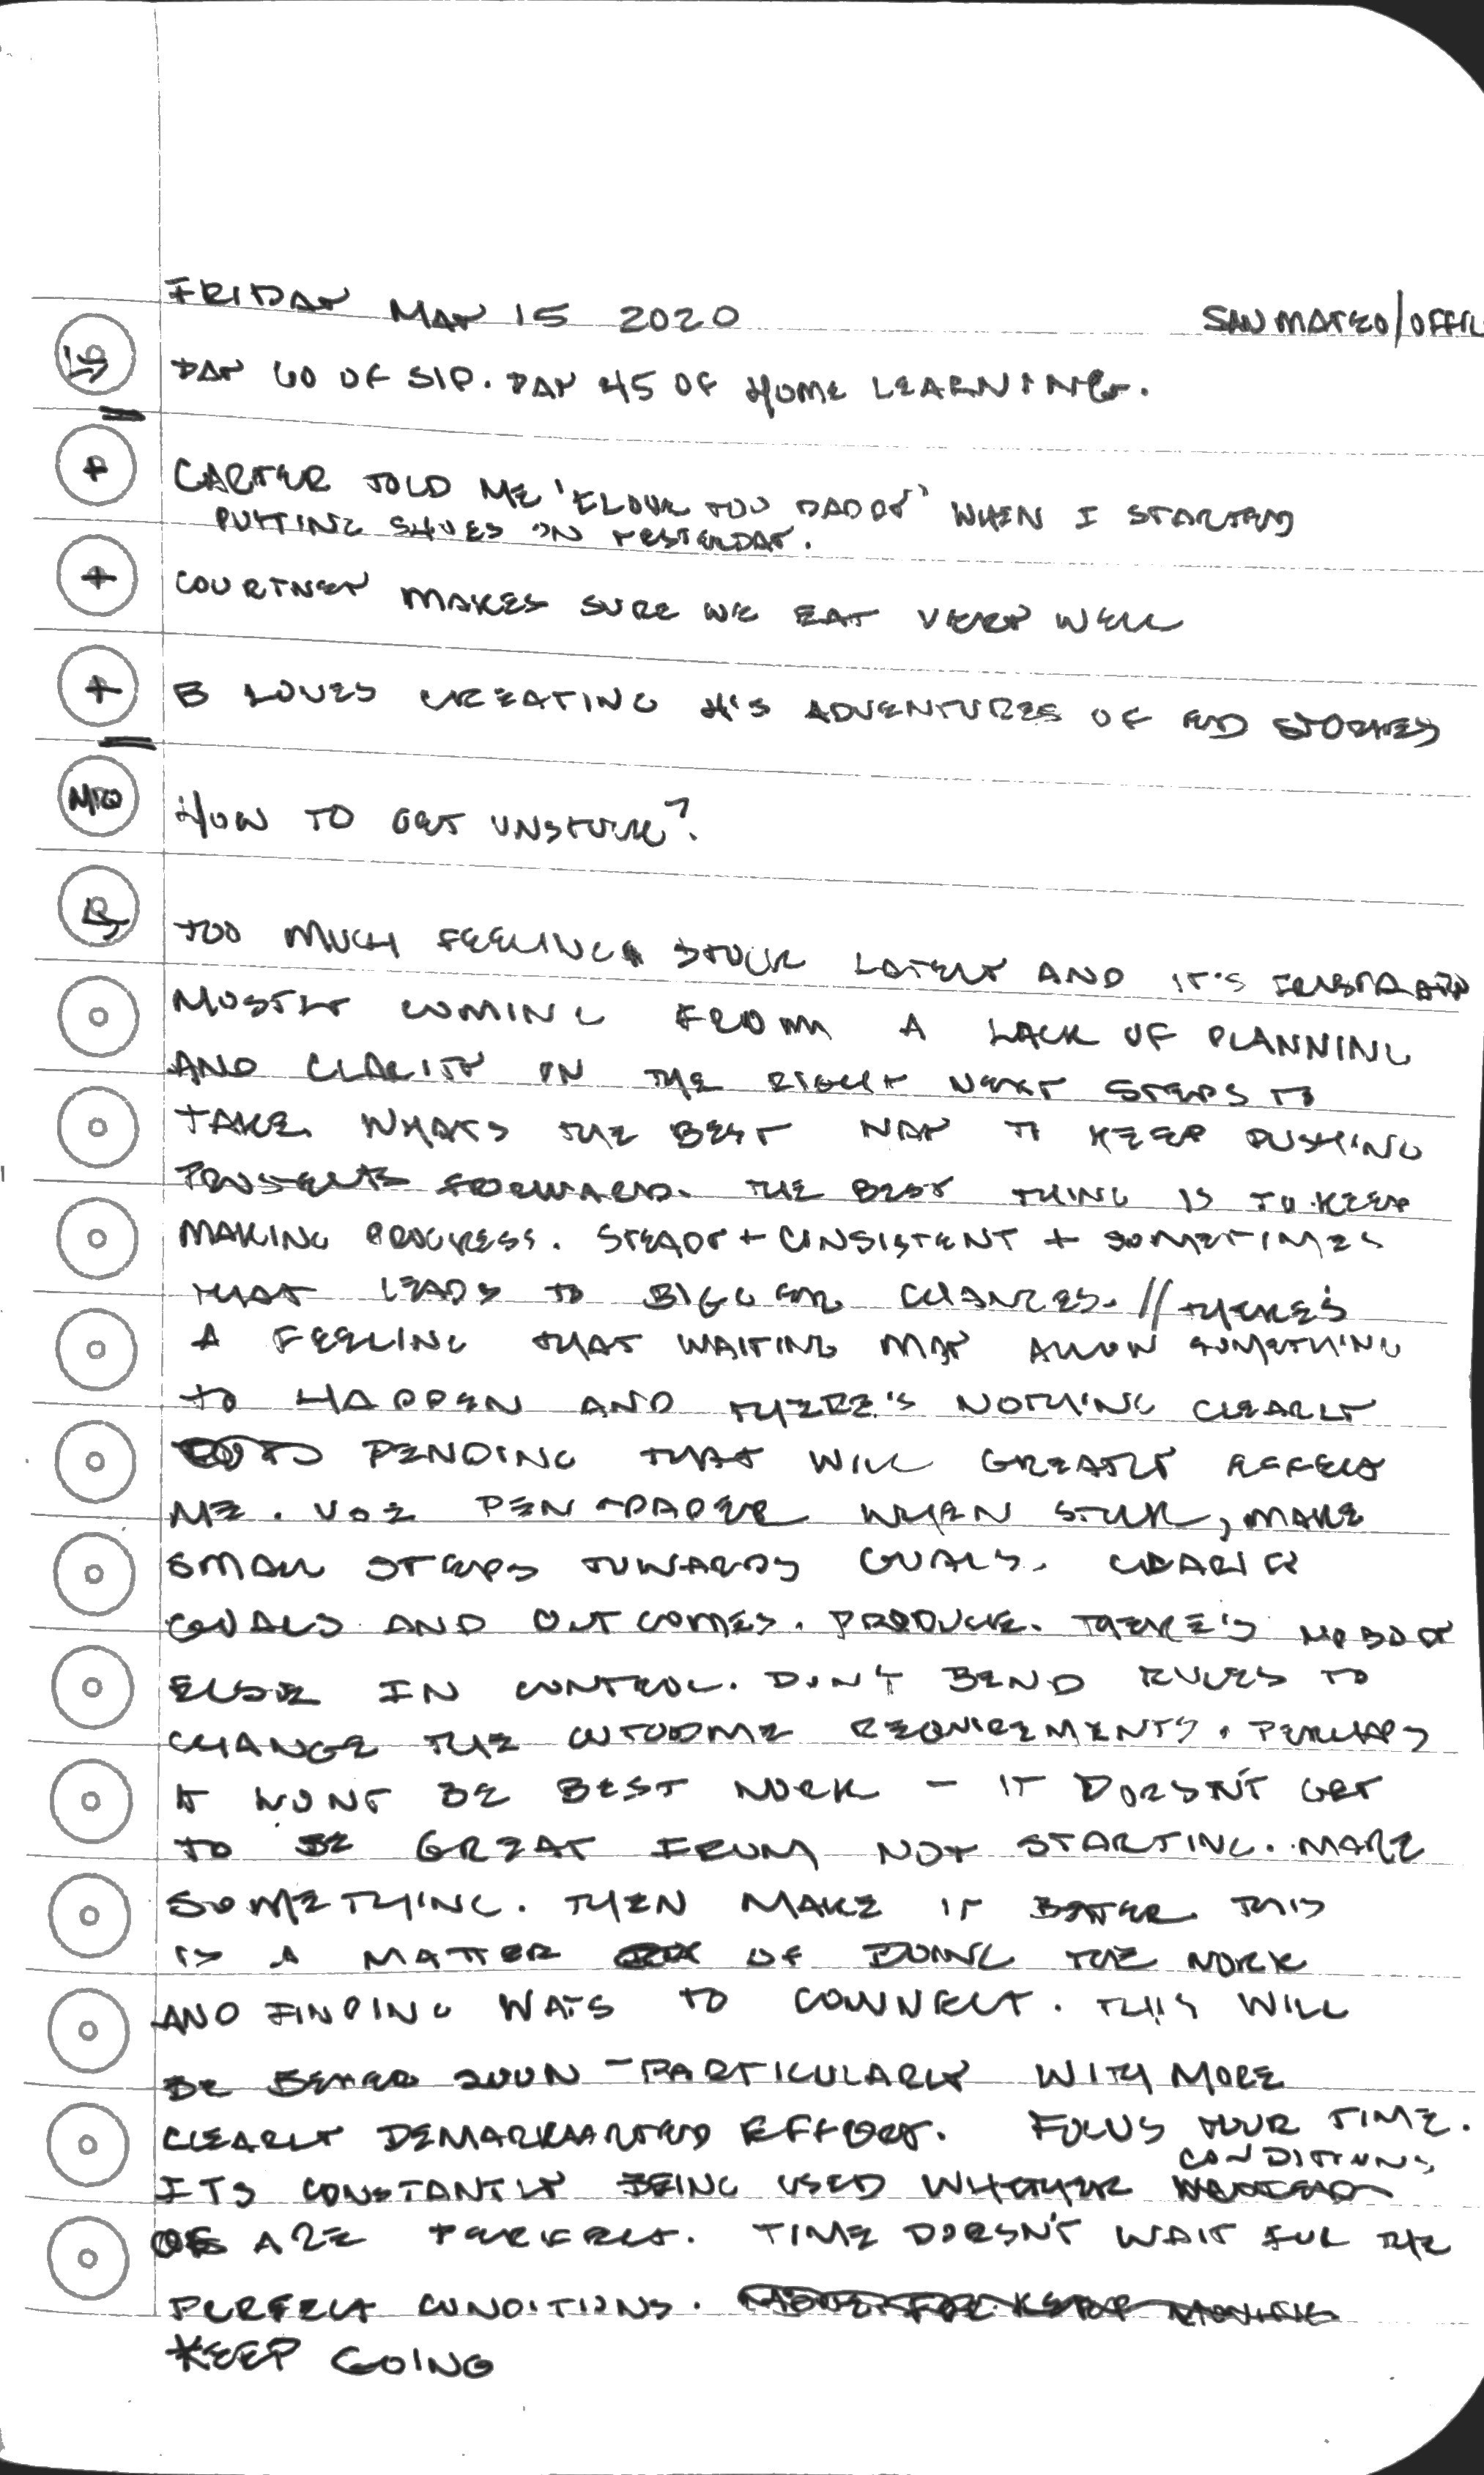 FRIDAY MAY 15 2020 SAN MATEO/OFFIC
DAY 60 OF SIP. DAY 45 OF HOME LEARNING.
+ CARTER TOLD ME 'I LOVE YOU DADDY' WHEN I STARTED
PUTTING SHOES ON YESTERDAY.
+ COURTNEY MAKES SURE WE EAT VERY WELL
+ B LOVES CREATING H'S ADVENTURES OF STORIES
HOW TO GET UNSTUCK?
TOO MUCH FEELING STUCK LATELY AND IT'S
MOSTLY COMING FROM A LACK OF PLANNING
AND CLARITY ON THE RIGHT NEXT STEPS TO
TAKE. WHAT'S THE BEST WAY TO KEEP PUSHING
PROJECTS FORWARD. THE BEST THING IS TO KEEP
MAKING PROGRESS. STEADY + CONSISTENT + SOMETIMES
THAT LEADS TO BIGGER CHANGES. // THERE'S
A FEELING THAT WAITING MAY ALLOW SOMETHING
TO HAPPEN AND THERE'S NOTHING CLEARLY
PENDING THAT WILL GREATLY AFFECT
ME. USE PEN + PAPER WHEN STUCK, MAKE
SMALL STEPS TOWARDS GOALS. CLARIFY
GOALS AND OUTCOMES. PRODUCE. THERE'S NOBODY
ELSE IN CONTROL. DON'T BEND RULES TO
CHANGE THE OUTCOME REQUIREMENTS. PERHAPS
IT WONT BE BEST WORK - IT DOESN'T GET
TO BE GREAT FROM NOT STARTING. MAKE
SOMETHING. THEN MAKE IT BETTER. THIS
IS A MATTER OF DOING THE WORK
AND FINDING WAYS TO CONNECT. THIS WILL
BE BETTER SOON - PARTICULARLY WITH MORE
CLEARLY EFFORT. FOCUS YOUR TIME.
CONDITIONS
ITS CONSTANTLY BEING USED WHETHER
ARE PERFECT. TIME DOESN'T WAIT FOR THE
PERFECT CONDITIONS.
KEEP GOING